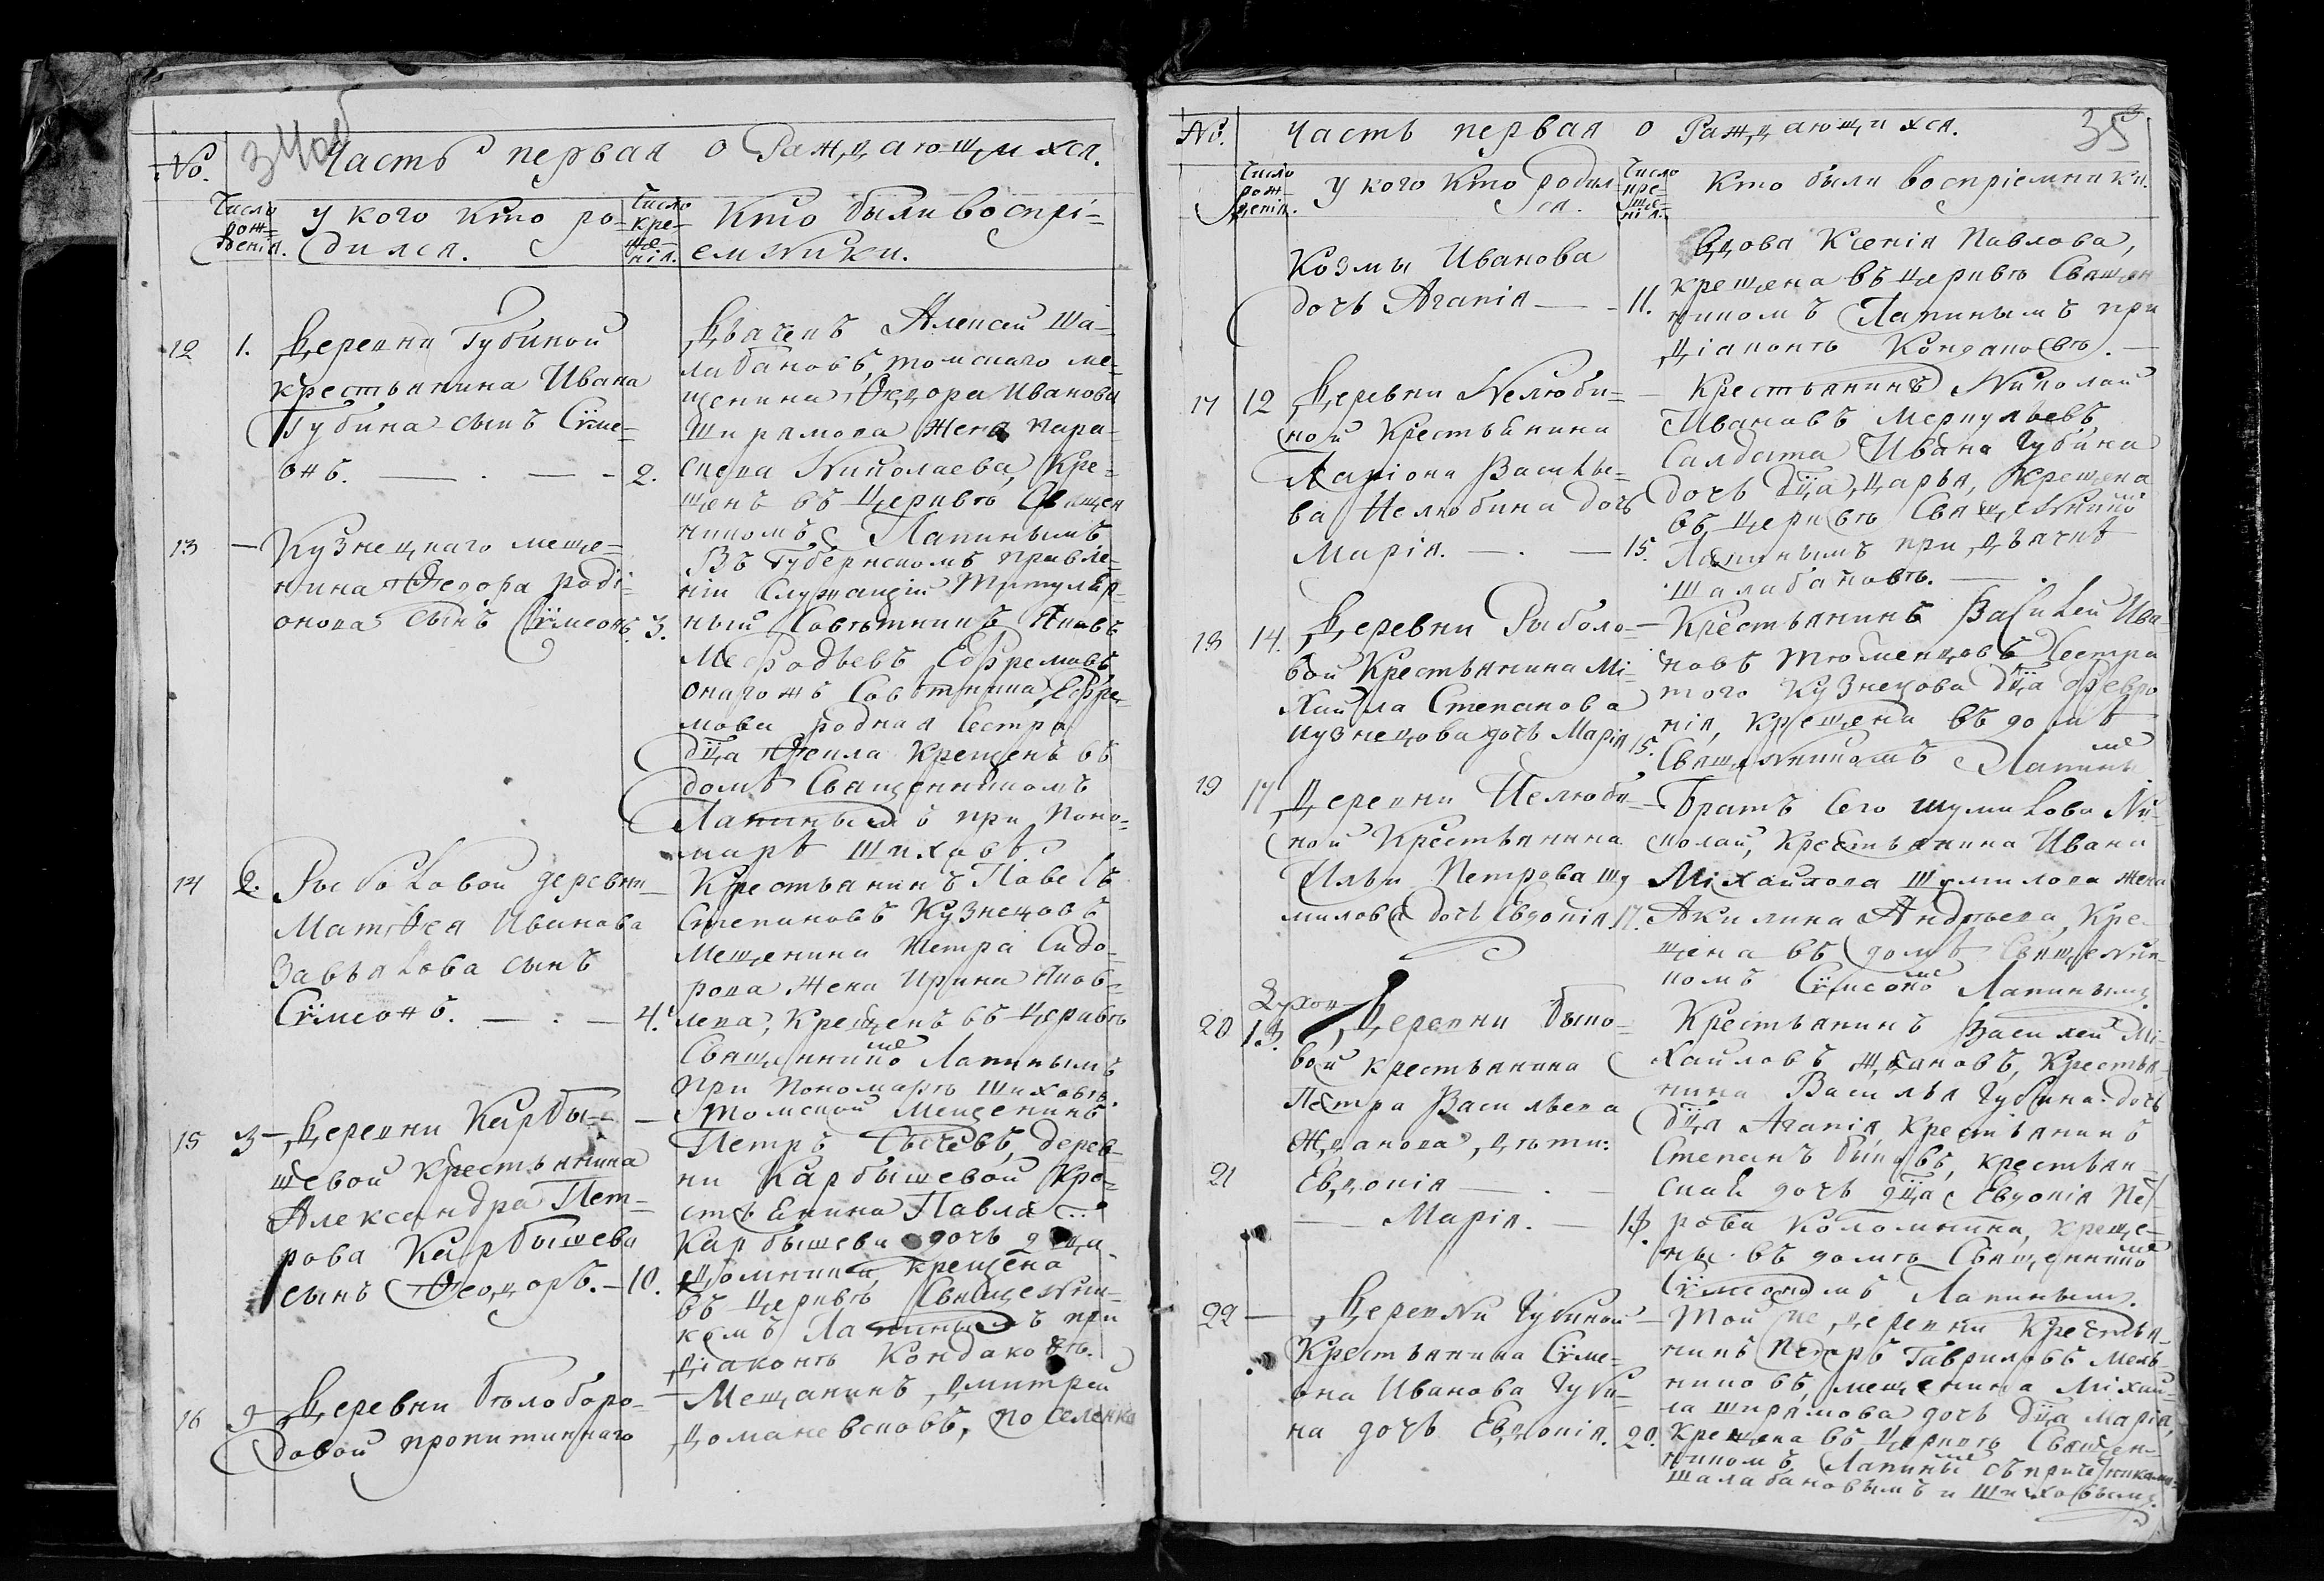 №.
Часть первая о Раждающихся.
Число рож-денія.
у кого кто ро-
дился.
Число кре-ще-нія.
Кто были воспрі-
емники.
12
1.
Деревни Губиной
крестьянина Ивана
Губина сынъ Сѵме-
онъ.
2.
Дьячекъ Алексей Ша-
лабановъ, томскаго ме-
щенина Ѳедора Иванова
Ширямова жена Пара-
скева Николаева, кре-
щенъ въ церквѣ Священ
никомъ Лапинымъ
13
Кузнецкаго меще-
нина Ѳедора роді-
онова сынъ Сѵмеонъ.
3.
Въ Губернскомъ правле-
ніи Служащій Титуляр-
ный Совѣтникъ Яковъ
Мефодьевъ Ефремовъ
онагожъ Совѣтника Ефре-
мова родная Сестра
дѣца Ѳекла крещенъ въ
домѣ Священникомъ
Лапинымъ при Поно-
марѣ Шиховѣ.
14
2.
Рыбаловой деревни
Матѳея Иванова
Завьялова сынъ
Сѵмеонъ.
4.
Крестьянинъ Павелъ
Степановъ Кузнецовъ
Мещенина Петра Сидо-
рова жена Ирина Яков-
лева, Крещенъ въ церквѣ
Священникомъ Лапинымъ
при Пономарѣ Шиховѣ.
15
3
Деревни Карбы-
шевой крестьянина
Александра Пет-
рова Карбышева
сынъ Ѳеодоръ.
10.
Томской Мещенинъ
Петръ Сычевъ, дерев-
ни Карбышевой кре-
стьянина Павла
Карбышева дочь дѣца
Домникія, крещена
въ церквѣ Священни-
комъ Лапинымъ при
Діаконѣ Кондаковѣ.
16
9
Деревни Бѣлоборо-
довой пропитаннаго
Мещанинъ Дмитрей
Домановсковъ, поселенка
№.
Часть первая о Раждающихся.
35
Число рож-денія.
У кого кто родил
ся.
Число кре-ще-нія.
Кто были воспріемники.
Козмы Иванова
дочь Агапія
11.
Вдова Ксенія Павлова,
крещена въ церквѣ Священ
никомъ Лапинымъ при
Діаконѣ Кондаковѣ.
17
12
Деревни Нелюби-
ной Крестьянина
Ларіона Василье-
ва Нелюбина дочь
Марія.
15.
Крестьянинъ Николай
Ивановъ Меркульевъ,
Салдата Ивана Губина
дочь дѣца Дарья, Крещена
въ церквѣ Священникомъ
Лапинымъ при Дьячкѣ
Шалабановѣ.
18
14.
Деревни Рыбало-
вой Крестьянина Мі-
хайла Степанова
кузнецова дочь Марія
15.
Крестьянинъ Василей Ива-
новъ Тюменцовъ Сестра
того Кузнецова дѣца Февро
нія, крещена въ домѣ
Священникомъ Лапинымъ
19
17
Деревни Нелюби-
ной Крестьянина
Ильи Петрова Шу
милова дочь Евдокія.
17.
Братъ Его Шумилова Ни-
колай, Крестьянина Ивана
Міхайлова Шумилова жена
Акилина Андреева, Кре
щена въ домѣ Священни-
комъ Сѵмеономъ Лапинымъ.
20
13.
Деревни Быко-
вой крестьянина
Петра Васильева
Жданова, дѣти:
21
Евдокія
Марія.
18.
Крестьянинъ Василей Мі-
хайловъ Ждановъ, Крестья
нина Василья Губина дочь
дѣца Агапія, Крестьянинъ
Степанъ Быковъ, крестьян-
ская дочь дѣца Евдокія Пет
рова Коломнина, креще-
ны въ домѣ Священникомъ
Сѵмеономъ Лапинымъ.
22
Деревни Губиной
Крестьянина Сѵме-
она Иванова Губи-
на дочь Евдокія.
20.
Той же деревни Крестья-
нинъ Петръ Гавриловъ Мель-
никовъ, мещенина Міхай-
ла Ширямова дочь дѣца Марія,
Крещена въ церквѣ Священ-
никомъ Лапинымъ съ причетниками
Шалабановымъ и Шиховымъ.